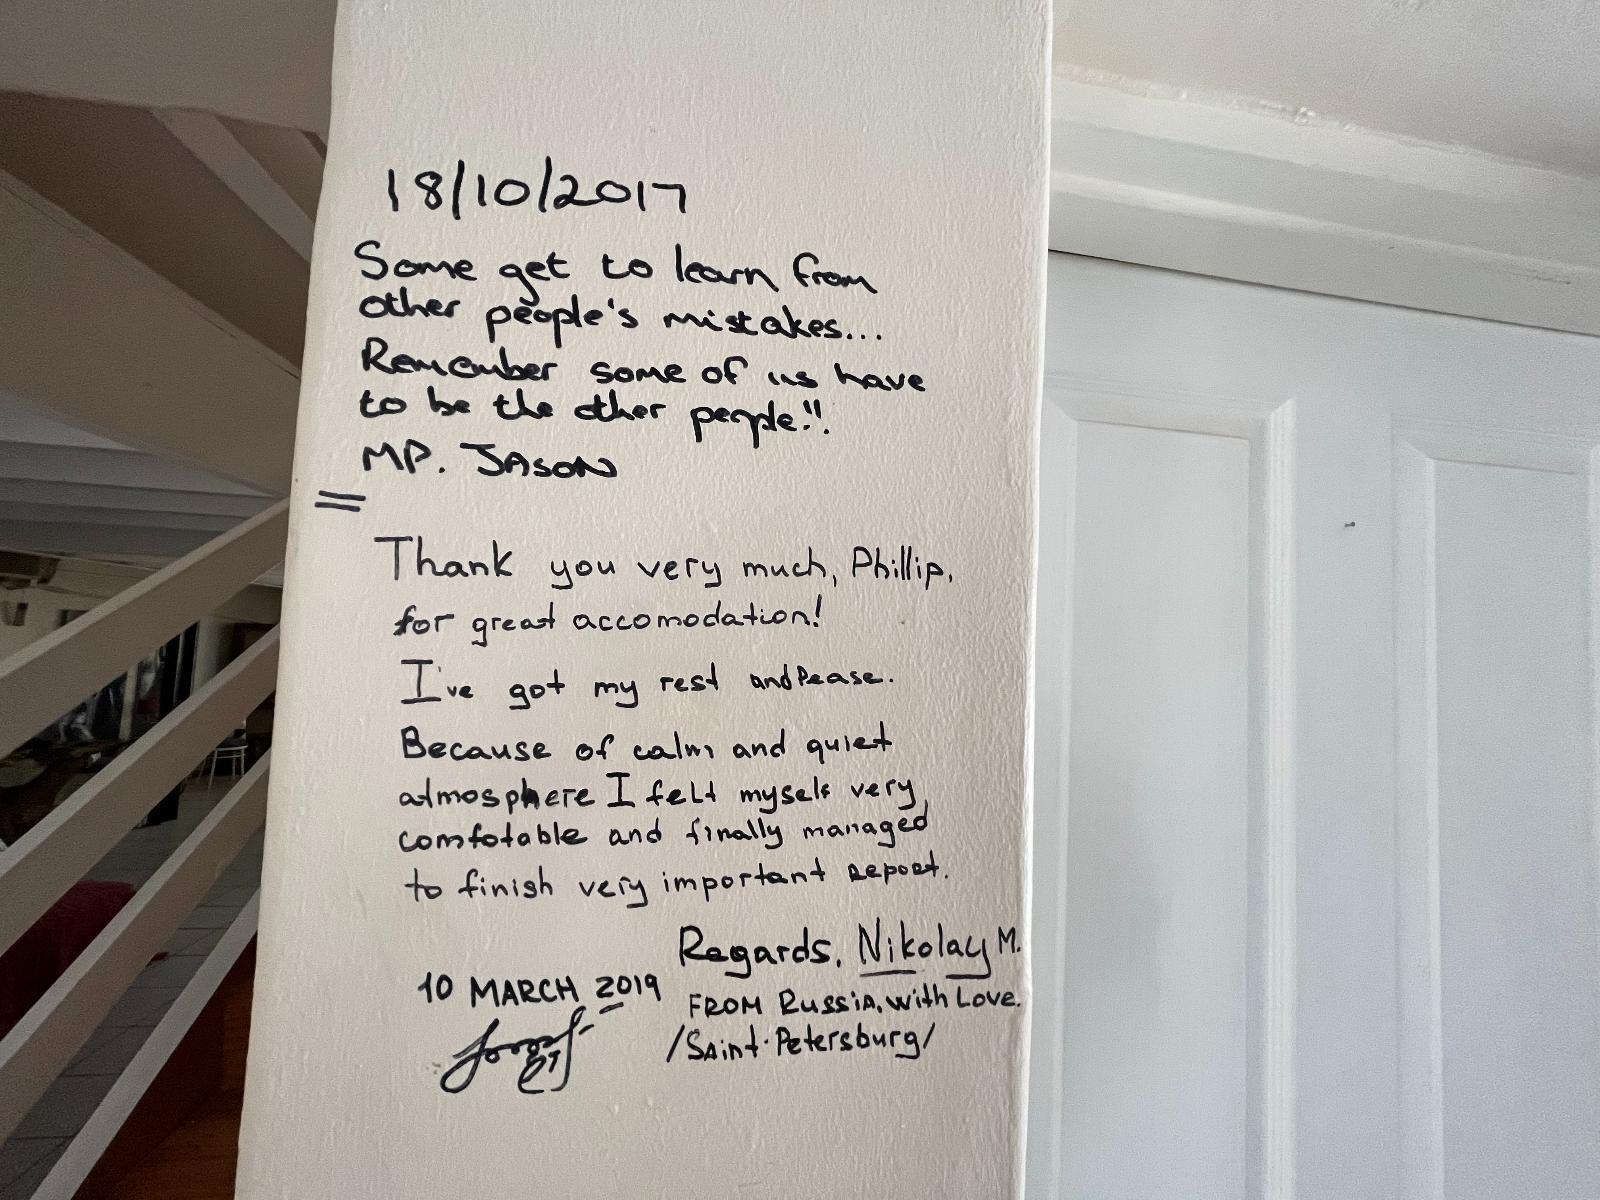 18/10/2017
Some get to learn from
other people's mistakes...
Remember some of us have
to be the other people!!
MP. JASON
Thank you very much, Phillip,
for great accomodation!
I've got my rest and Pease.
Because of calm and quiet
atmosphere I felt myself very
comfotable and finally managed
to finish very important report.
Regards, Nikolay M.
10 MARCH 2019
FROM Russia, with Love.
/Saint-Petersburg/